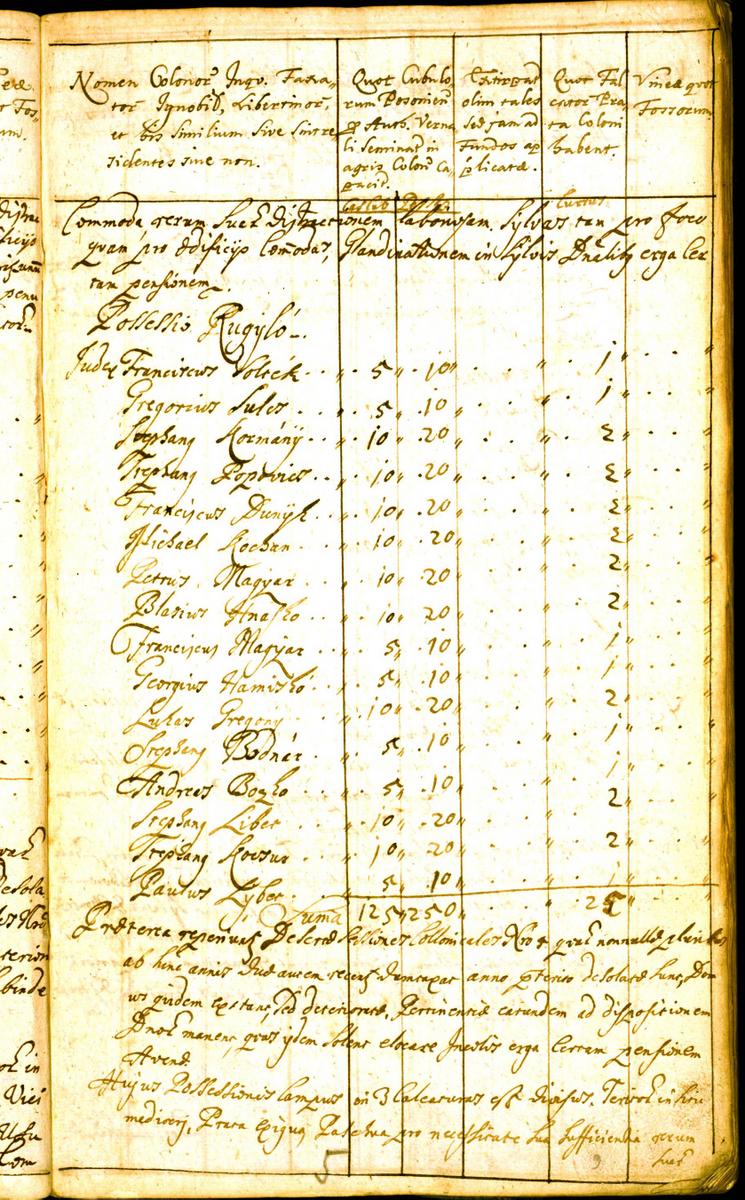 Nomen Colonor Inqu. Taxa-
tor Ignobil, Libertinor,
et his Similium Sive Sint re-
sidentes sive non.
Quot Cubulo-
rum Posonien
Verna-
li Seminat in
agris Colon Ca-
pacit.
Extirpat
olim tales
sed jam ad
Fundos ap-
plicatæ.
Quot Fal-
cator Pra-
ta Coloni
habent.
Vineæ quot
Fossorum
Commoda rerum Suar Distractionem laboriosam, Sylvas tam pro foco
quam pro ædificijs Comodas, Glandinationem in Sylvis Dnalibus erga Cer-
tam pensionem.
Possessio Rugyló.
Judex Franciscus Volcsék 5 10 1
Gregorius Sules 5 10 1
Stephang Kormány 10 20 2
Stephang Popovics 10 20 2
Franciscus 10 20 2
Michael Kochan 10 20 2
Petrus Magyar 10 20 2
Blasius Hnasko 10 20 2
Franciscus Magyar 5 10 1
Georgius Hamiskó 5 10 1
Lukas Gregony 10 20 2
Stephang Bodnár 5 10 1
Andreas Bozko 5 10 1
Stephang Liber 10 20 2
Stephang Kocsur 10 20 2
Paulus Lyber 5 10 1
Suma 125 250 25
Præterea reperiunt Desertæ Sessiones Collonicales Nro 4 quar nonnullæ pluribus
ab hinc annis duæ autem recens dumtaxat anno præterito desolatæ sunt, Dom-
us quidem extant, Sed deterioratæ, Pertinentiæ earundem ad dispositionem
Dnor manent, quas ijdem Solent elocare Incolis erga Certam pensionem
Avenæ
Hujus Possessionis Campus in 3 Calcaturas est divisus. Territor in situ
mediocrj, Prata exigua Pascua pro necessitate sua sufficientia rerum
suar
5